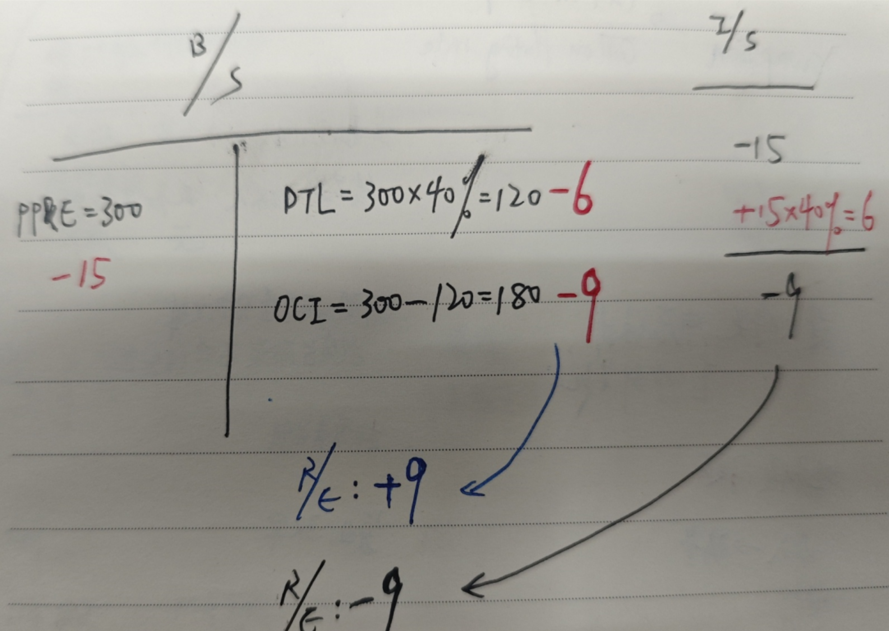 B/S
I/S
-15
PPRE=300
DTL=300×40%=120-6
+15×40%=6
-15
OCI=300-120=180-9
-9
R/E:+9
R/E:-9